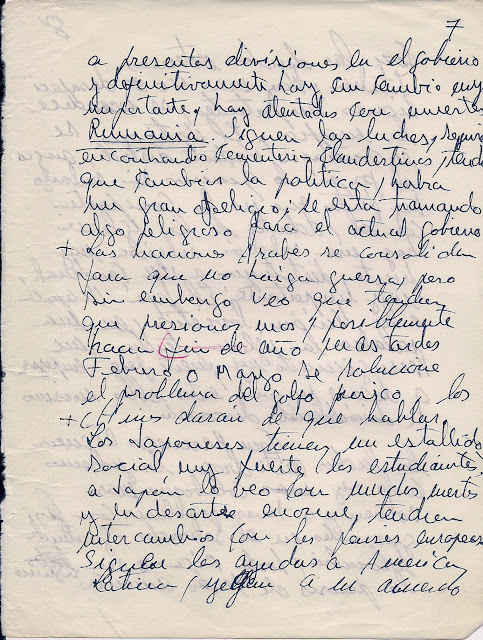 7
a presentar divisiones en el gobierno
y definitivamente hay un cambio muy
importante, hay atentados con muertes
Rumania. Siguen las luchas, seguiran
encontrando cementerios clandestinos, tendra
que cambiar la politica, habra
un gran peligro; se esta tramando
algo peligroso para el actual gobierno
+ Las naciones Arabes se consoliden
para que no haiga guerra, pero
sin embargo veo que tendran
que presionar mas, posiblemente
hacia fin de año, mas tardar
Febrero o Marzo se solucione
el problema del golfo persico, los
+ Chinos daran de que hablar,
Los Japoneses, tienen un estallido
Social muy fuerte (los estudiantes)
a Japón lo veo con muchos muertos
y un desastre enorme, tendran
intercambios con los paises europeos
Siguen las ayudas a America
Latina, llegan a un acuerdo